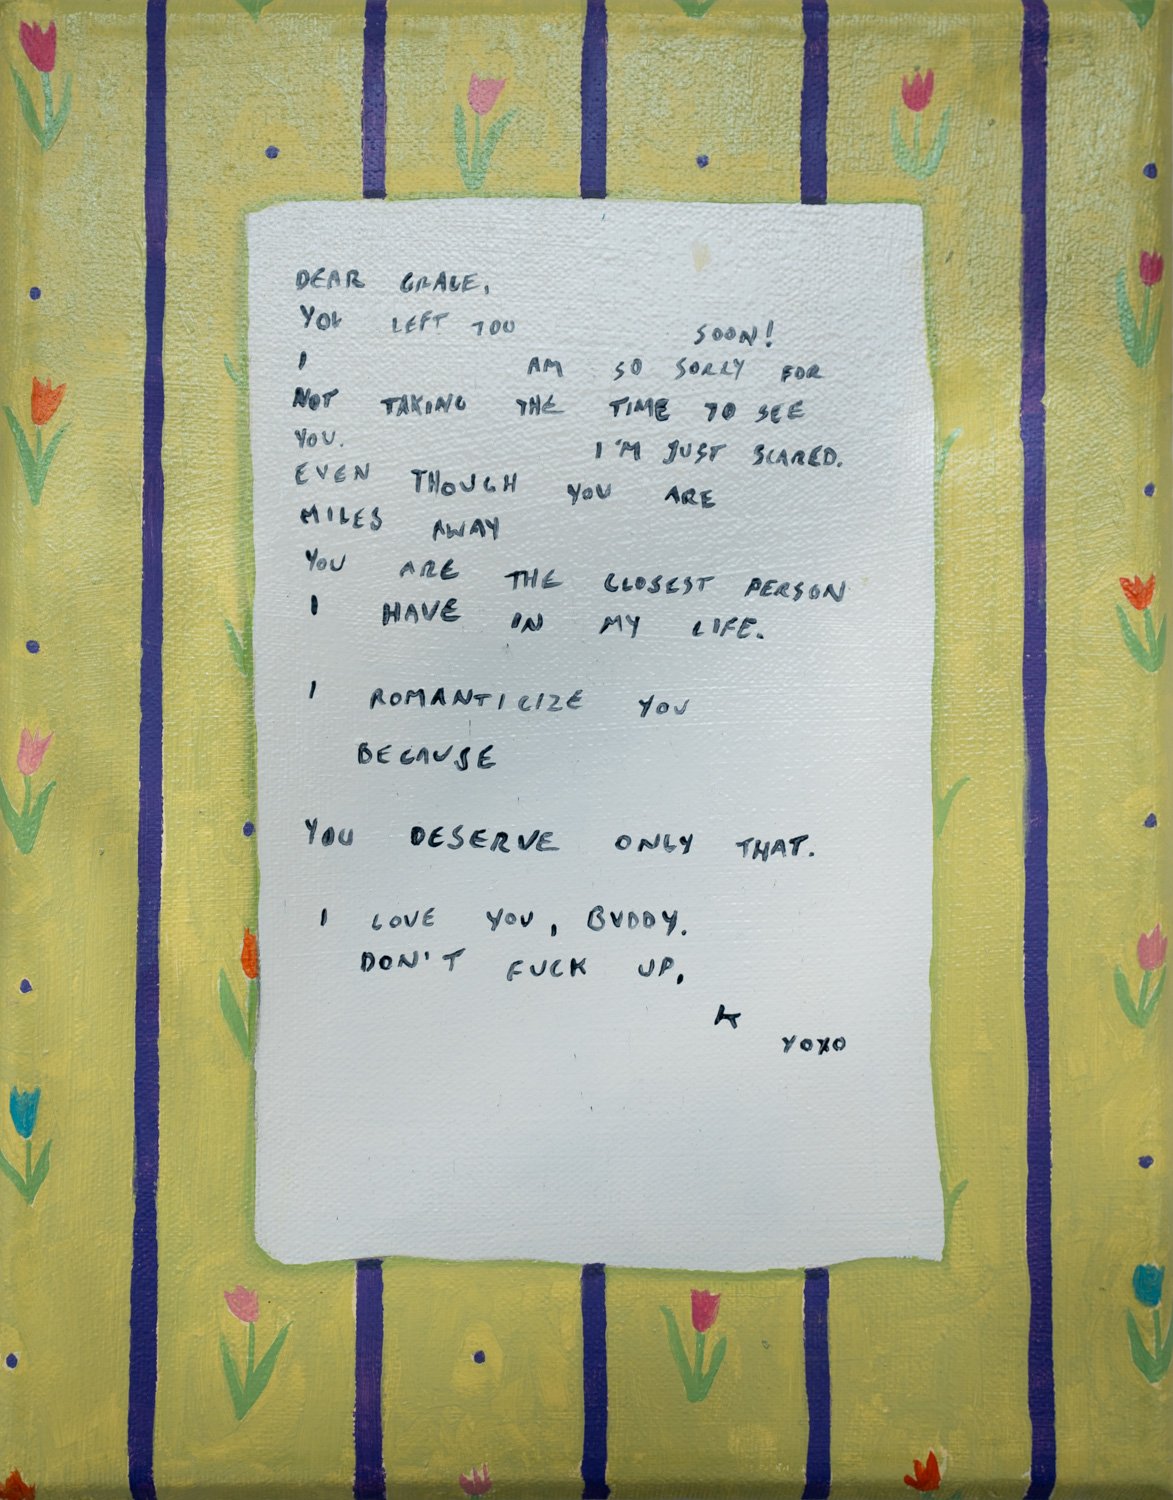 DEAR GRACE,
YOU LEFT TOO SOON!
I AM SO SORRY FOR
NOT TAKING THE TIME TO SEE
YOU. I'M JUST SCARED.
EVEN THOUGH YOU ARE
MILES AWAY
YOU ARE THE CLOSEST PERSON
I HAVE IN MY LIFE.
I ROMANTICIZE YOU
BECAUSE
YOU DESERVE ONLY THAT.
I LOVE YOU, BUDDY.
DON'T FUCK UP,
K
YOXO